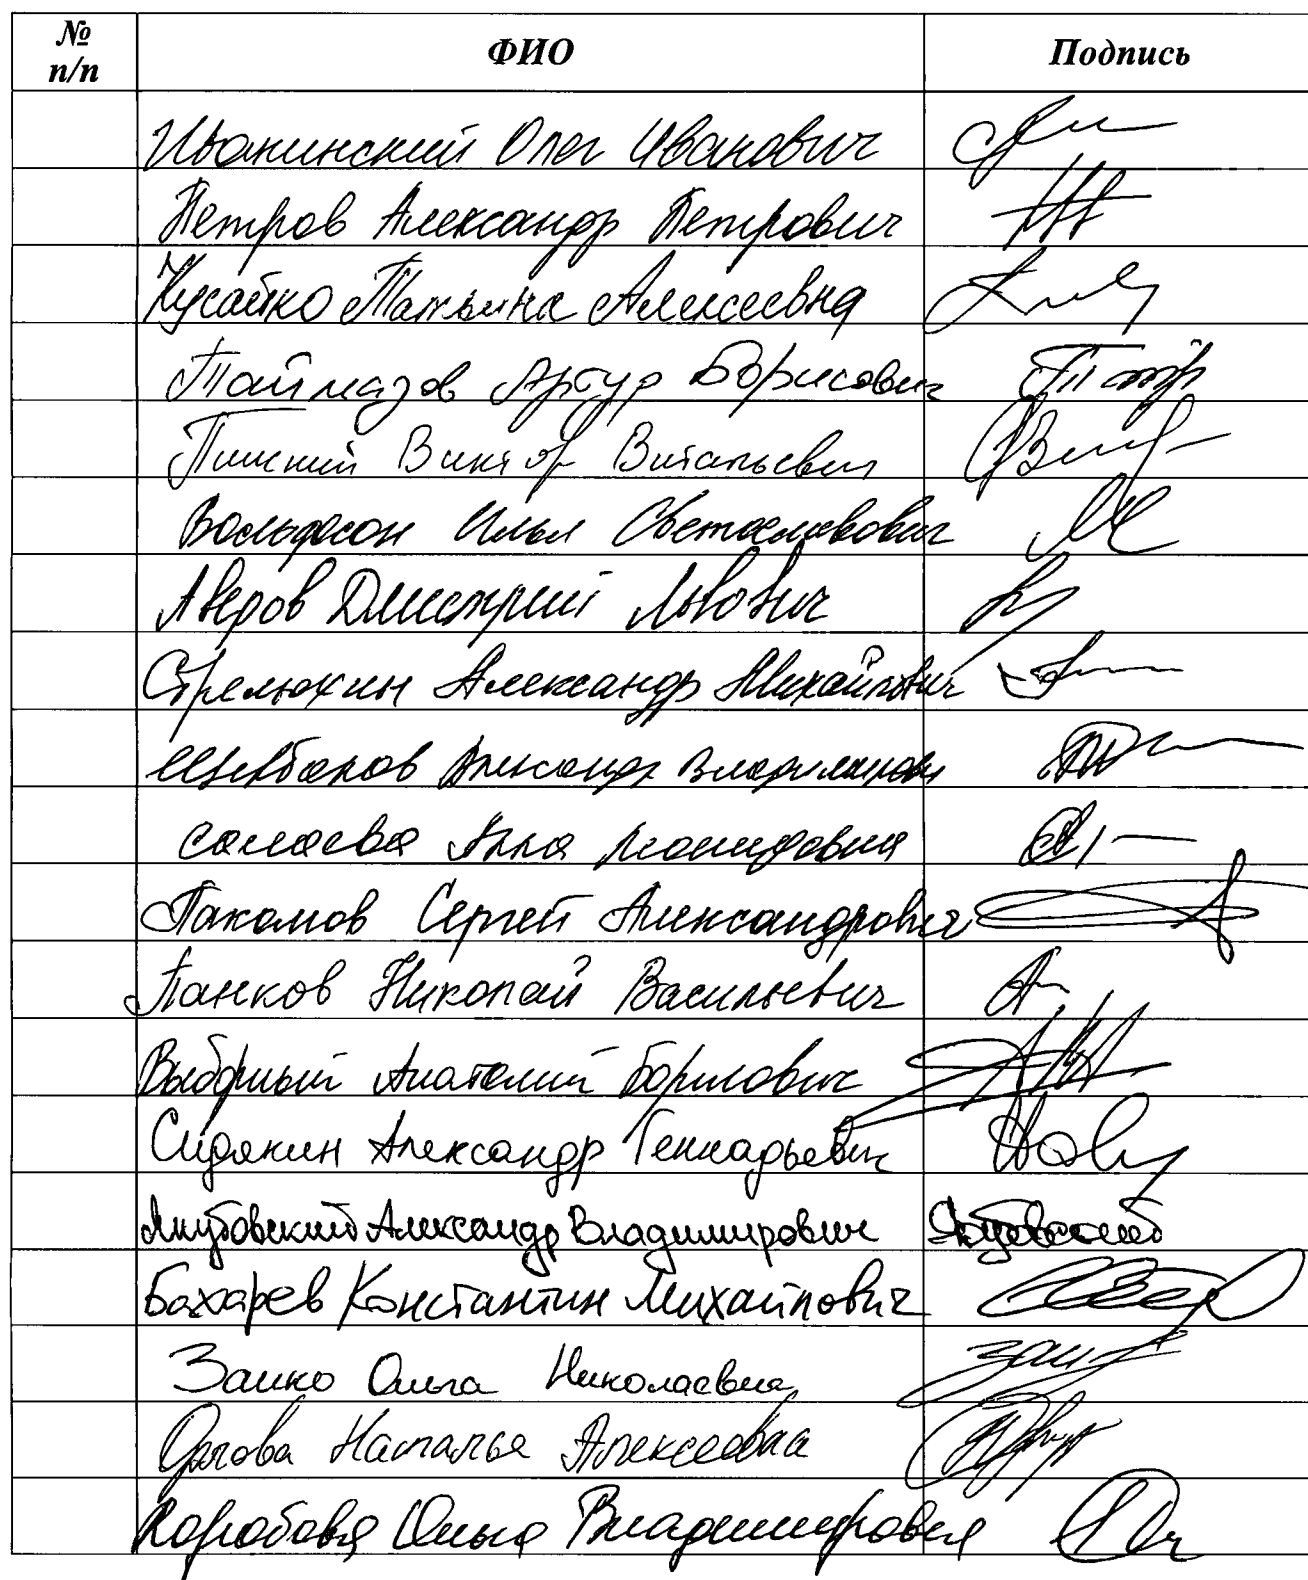 № п/п ФИО Подпись
Иванинский Олег Иванович
Петров Александр Петрович
Кусайко Татьяна Алексеевна
Таймазов Артур Борисович
Пинский Виктор Витальевич
Вольфсон Илья Светославович
Аверов Дмитрий Львович
Стрелюхин Александр Михайлович
Щербаков Александр Владимирович
Салаева Алла Леонидовна
Пахомов Сергей Александрович
Панков Николай Васильевич
Выборный Анатолий Борисович
Сидякин Александр Геннадьевич
Якубовский Александр Владимирович Якубовский
Бахарев Константин Михайлович
Занко Ольга Николаевна
Орлова Наталья Алексеевна
Коробова Ольга Владимировна